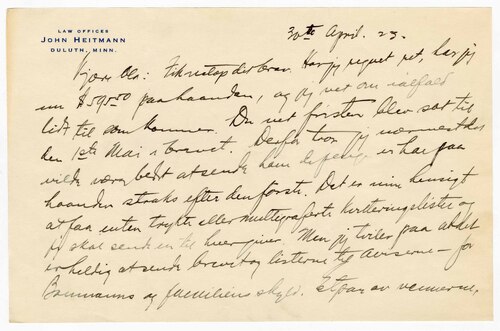 LAW OFFICES
JOHN HEITMANN
DULUTH, MINN.
30te April. 23.
Kjære Ola: Fik netop dit brev. Har jeg regnet ret, har jeg
nu $590.00 paa haanden, og jeg vet om ialfald
lidt til som kommer. Du vet fristen blev sat til
den 1ste Mai i brevet. Derfor tror jeg nærmest det
vilde være bedst at sende ham de penge vi har paa
haanden straks efter den første. Det er min hensigt
at faa enten trykte eller multigraferte kvitteringslister og
saa skal sende en til hver giver. Men jeg tviler paa at det
er heldig at sende brevit og listerne til aviserne – for
Baumanns og familiens skyld. Et par av vennerne,